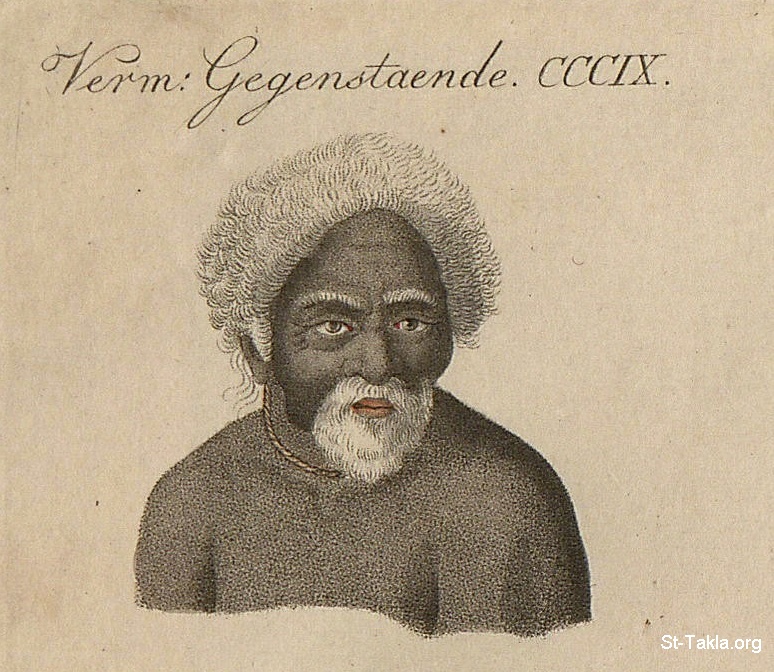 Verm: Gegenstaende. CCCIX.
St-Takla.org